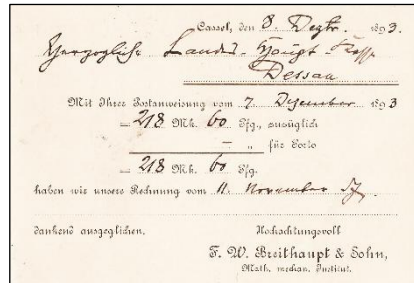 Cassel, den 8. Dezbr. 1893.
Herzogliche Landes-Haupt-Kasse
Dessau
Mit Ihrer Postanweisung vom 7. Dezember 1893
= 218 Mk. 60 Pfg., zuzüglich
— „ für Porto
= 218 Mk. 60 Pfg.
haben wir unsere Rechnung vom 11. November
dankend ausgeglichen. Hochachtungsvoll
F. W. Breithaupt & Sohn,
Math. mechan. Institut.